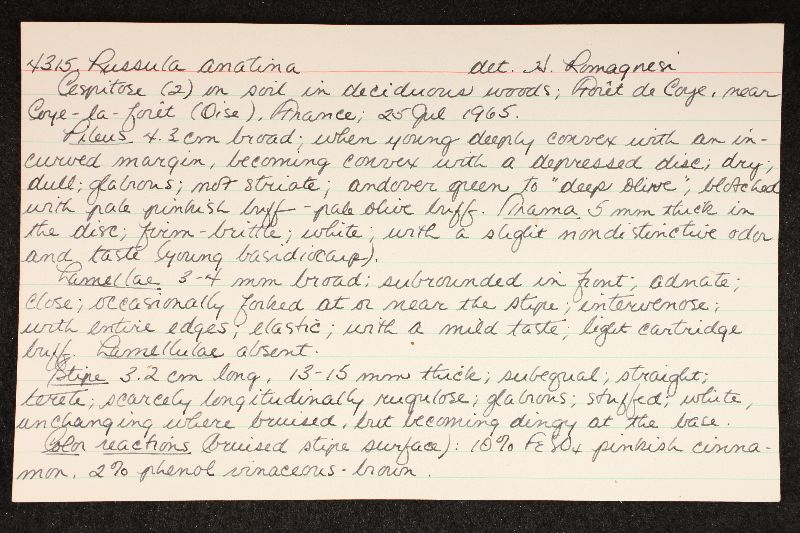 4315 Russula anatina det. H. Romagnesi
Cespitose (2) on soil in deciduous woods, Forêt de Coye, near
Coye-la-forêt (Oise), France; 25 Jul 1965.
Pileus 4.3 cm broad; when young deeply convex with an in-
curved margin, becoming convex with a depressed disc; dry;
dull; glabrous; not striate; andover green to "deep olive"; blotched
with pale pinkish buff - pale olive buff. Trama 5 mm thick in
the disc; firm-brittle; white; with a slight nondistinctive odor
and taste (young basidiocarp).
Lamellae 3-4 mm broad; subrounded in front; adnate;
close; occasionally forked at or near the stipe; intervenose;
with entire edges; elastic; with a mild taste; light cartridge
buff. Lamellulae absent.
Stipe 3.2 cm long, 13-15 mm thick; subequal; straight;
terete; scarcely longitudinally rugulose; glabrous; stuffed; white,
unchanging where bruised, but becoming dingy at the base.
Color reactions (bruised stipe surface): 10% FeSO4 pinkish cinna-
mon, 2% phenol vinaceous-brown.